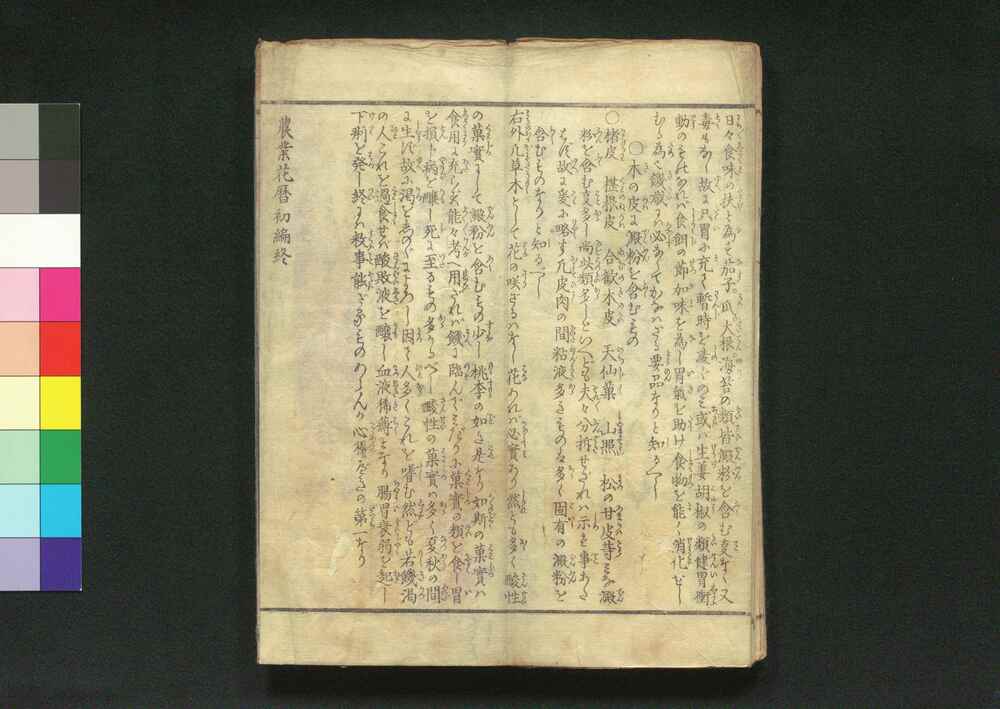 日々食味の扶と為せ茄子瓜大根海苔の類皆澱粉を含む事なく又
毒もなし故に只胃に充て暫時を凌ぐのミ或ハ生姜胡椒の類健胃衝
動のものなれバ食餌の節加味を為し胃氣を助け食物を能く消化せし
むる為ハ饑歳にハ必なくてかなハざる要品なりと知るべし
〇木の皮に澱粉を含むもの
〇楮皮 櫵椽皮 合歓木皮 天仙菓 山照 松の甘皮等ミな澱
粉を含む事多し尚此類多しといへども夫々分拆せざれハ示す事あたハ
ず故に爰に略す凡皮肉の間粘液多きものハ多く固有の澱粉を
含むものなりと知るべし
右外凡草木として花の咲ざるハなし花あれバ必実あり然れども多く酸性
の菓實にして澱粉を含むもの少し桃李の如き是なり如斯の菓實ハ
食用に充らず能々考へ用ざれバ饑に臨んでミだりに菓實の類を食し胃
を損ト病を醸し死に至るもの多かるべし酸性の菓實ハ多く夏秋の間
に生ず故に渇を志のぐによろし因て人多くこれを嗜む然ども若饑渇
の人これを過食せバ酸敗液を醸し血液稀薄となり腸胃衰弱を起し
下痢を発し終にハ救事能ざるものあらんか心得べきの第一なり
農業花暦初編終